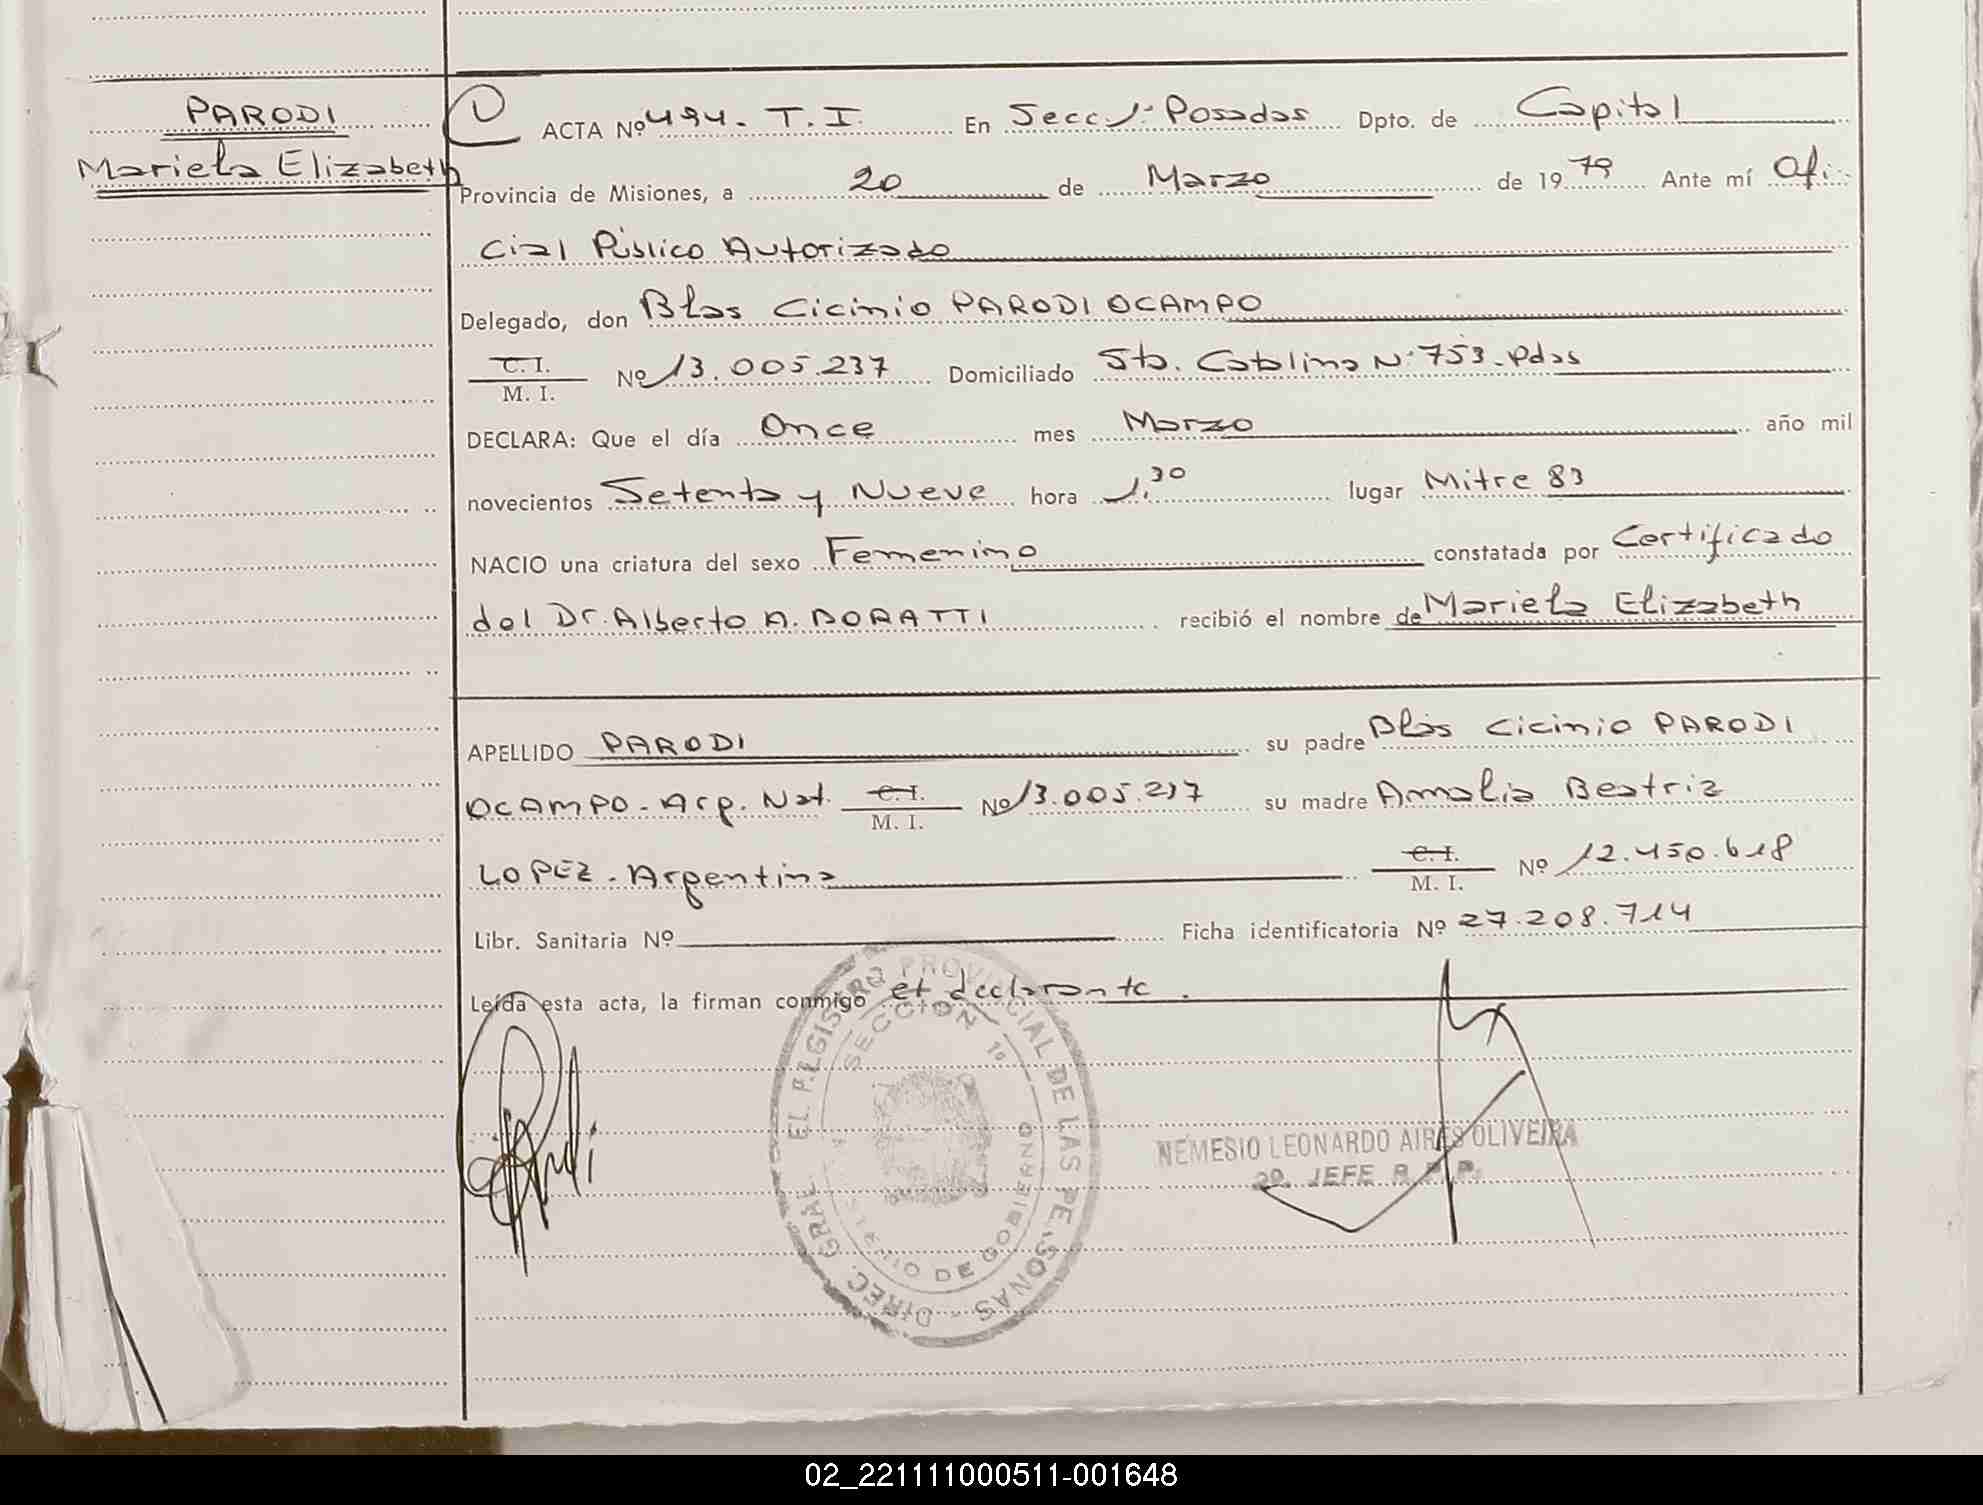 PARODI
Mariela Elizabeth
ACTA Nº 494. T. I. En Secc 1ª Posadas Dpto. de Capital
Provincia de Misiones, a 20 de Marzo de 1979 Ante mí Ofi
cial Público Autorizado
Delegado, don Blas Cicinio PARODI OCAMPO
C. I.
M. I. Nº 13.005.237 Domiciliado Sta. Catalina Nº 753 - Pdas
DECLARA: Que el día Once mes Marzo año mil
novecientos Setenta y Nueve hora 1.30 lugar Mitre 83
NACIO una criatura del sexo Femenino constatada por Certificado
del Dr. Alberto A. BORATTI recibió el nombre de Mariela Elizabeth
APELLIDO PARODI su padre Blas Cicinio PARODI
OCAMPO - Arg. Nat. C. I.
M. I. Nº 13.005.237 su madre Amalia Beatriz
LOPEZ - Argentina C. I.
M. I. Nº 12.450.618
Libr. Sanitaria Nº Ficha identificatoria Nº 27.208.714
Leída esta acta, la firman conmigo el declarante.
DIREC. GRAL. EL REGISTRO PROVINCIAL DE LAS PERSONAS
SECCION 1º
MINISTERIO DE GOBIERNO
NEMESIO LEONARDO AIRES OLIVEIRA
2º. JEFE R. P. P.
02_221111000511-001648